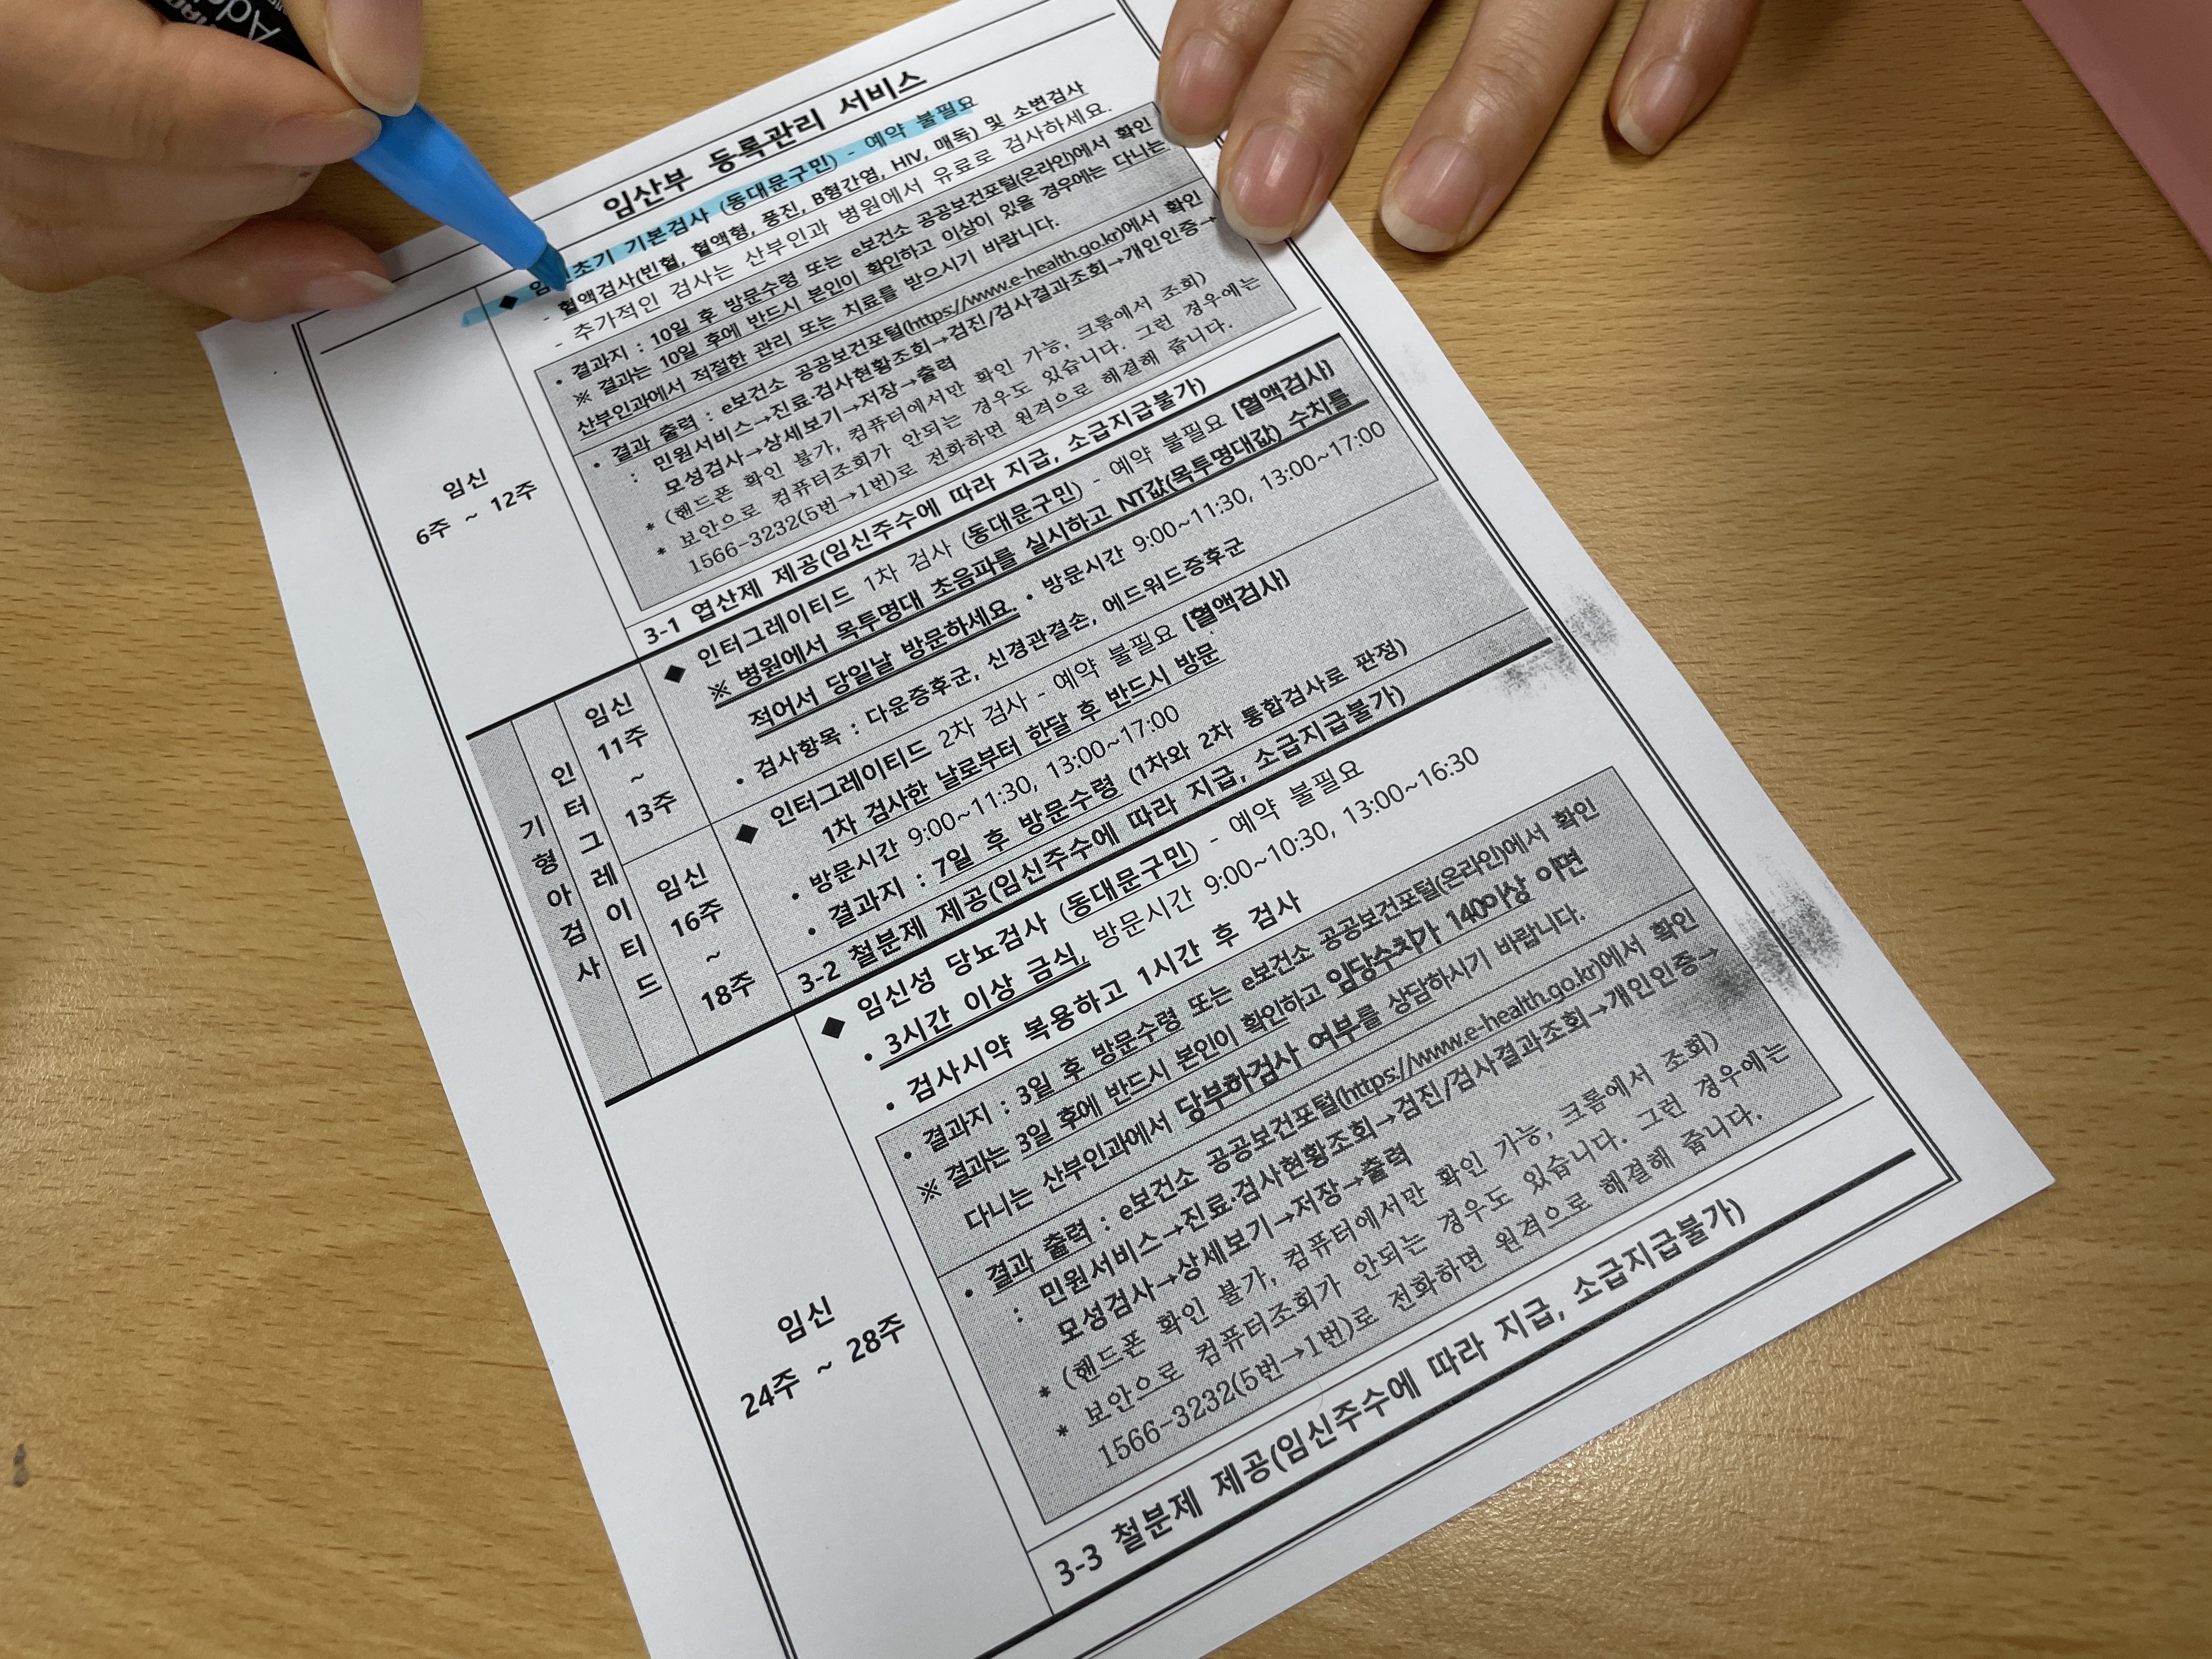 임산부 등록관리 서비스
임신
6주 ~ 12주
◆ 초기 기본검사 (동대문구민) - 예약 불필요
- 혈액검사(빈혈, 혈액형, 풍진, B형간염, HIV, 매독) 및 소변검사
- 추가적인 검사는 산부인과 병원에서 유료로 검사하세요.
• 결과지 : 10일 후 방문수령 또는 e보건소 공공보건포털(온라인)에서 확인
※ 결과는 10일 후에 반드시 본인이 확인하고 이상이 있을 경우에는 다니는
산부인과에서 적절한 관리 또는 치료를 받으시기 바랍니다.
• 결과 출력 : e보건소 공공보건포털(https://www.e-health.go.kr)에서 확인
: 민원서비스→진료·검사현황조회→검진/검사결과조회→개인인증→
모성검사→상세보기→저장→출력
* (핸드폰 확인 불가, 컴퓨터에서만 확인 가능, 크롬에서 조회)
* 보안으로 컴퓨터조회가 안되는 경우도 있습니다. 그런 경우에는
1566-3232(5번→1번)로 전화하면 원격으로 해결해 줍니다.
3-1 엽산제 제공(임신주수에 따라 지급, 소급지급불가)
기형아검사
인터그레이티드
임신
11주
~
13주
◆ 인터그레이티드 1차 검사 (동대문구민) - 예약 불필요 [혈액검사]
※ 병원에서 목투명대 초음파를 실시하고 NT값(목투명대값) 수치를
적어서 당일날 방문하세요. • 방문시간 9:00~11:30, 13:00~17:00
• 검사항목 : 다운증후군, 신경관결손, 에드워드증후군
임신
16주
~
18주
◆ 인터그레이티드 2차 검사 - 예약 불필요 [혈액검사]
1차 검사한 날로부터 한달 후 반드시 방문
• 방문시간 9:00~11:30, 13:00~17:00
• 결과지 : 7일 후 방문수령 (1차와 2차 통합검사로 판정)
3-2 철분제 제공(임신주수에 따라 지급, 소급지급불가)
임신
24주 ~ 28주
◆ 임신성 당뇨검사 (동대문구민) - 예약 불필요
• 3시간 이상 금식, 방문시간 9:00~10:30, 13:00~16:30
• 검사시약 복용하고 1시간 후 검사
• 결과지 : 3일 후 방문수령 또는 e보건소 공공보건포털(온라인)에서 확인
※ 결과는 3일 후에 반드시 본인이 확인하고 임당수치가 140이상 이면
다니는 산부인과에서 당부하검사 여부를 상담하시기 바랍니다.
• 결과 출력 : e보건소 공공보건포털(https://www.e-health.go.kr)에서 확인
: 민원서비스→진료·검사현황조회→검진/검사결과조회→개인인증→
모성검사→상세보기→저장→출력
* (핸드폰 확인 불가, 컴퓨터에서만 확인 가능, 크롬에서 조회)
* 보안으로 컴퓨터조회가 안되는 경우도 있습니다. 그런 경우에는
1566-3232(5번→1번)로 전화하면 원격으로 해결해 줍니다.
3-3 철분제 제공(임신주수에 따라 지급, 소급지급불가)